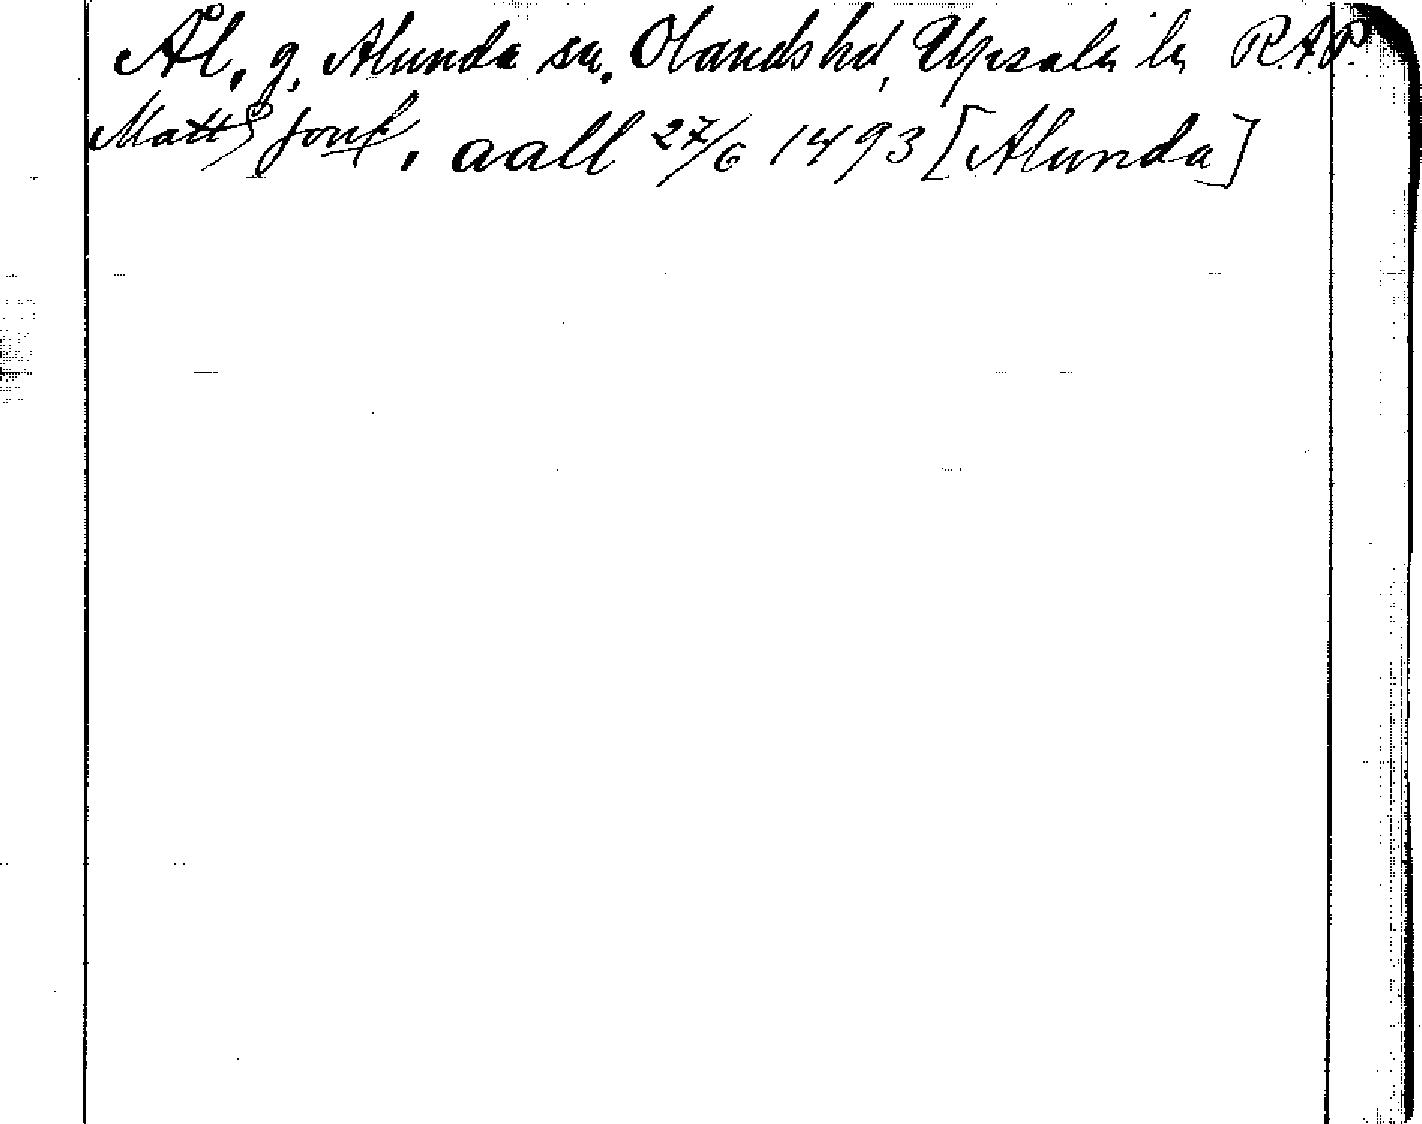 Ål, g, Alunda sn, Olands hd, Upsala ln R.A.P.
aall 27/6 1493 [Alunda]